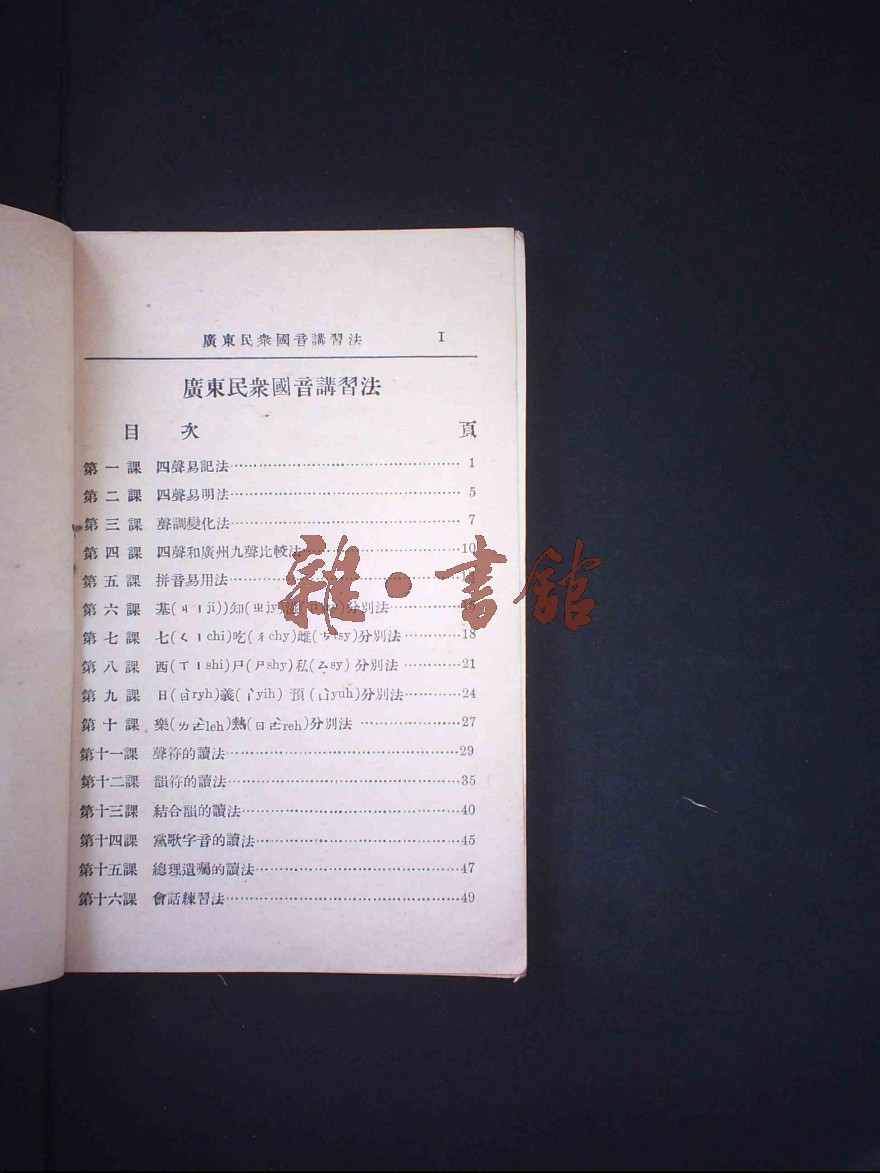 廣東民衆國音講習法 I
廣東民衆國音講習法
目 次 頁
第一課 四聲易記法 1
第二課 四聲易明法 5
第三課 聲調變化法 7
第四課 四聲和廣州九聲比較法 10
第五課 拼音易用法
第六課 基(ㄐㄧji)知(ㄓjy 分別法
第七課 七(ㄑㄧchi)吃(ㄔchy)雌(ㄘtsy)分別法 18
第八課 西(ㄒㄧshi)尸(ㄕshy)私(ㄙsy)分別法 21
第九課 日(ㄖryh)義(ㄧyih)預(ㄩyuh)分別法 24
第十課 樂(ㄌㄜleh)熱(ㄖㄜreh)分別法 27
第十一課 聲符的讀法 29
第十二課 韻符的讀法 35
第十三課 結合韻的讀法 40
第十四課 黨歌字音的讀法 45
第十五課 總理遺囑的讀法 47
第十六課 會話練習法 49
雜·書館